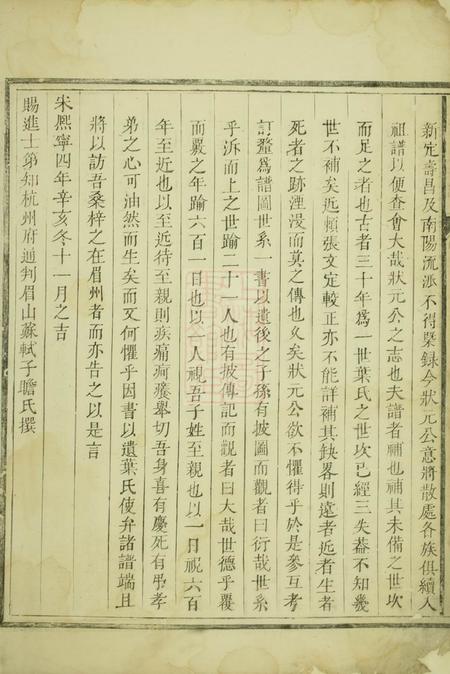 新定壽昌及南陽流派不得槩録今狀元公意將散處各族俱續入
祖譜以便查會大哉狀元公之志也夫譜者補也補其未備之世次
而足之者也古者三十年爲一世葉氏之世次已經三失葢不知幾
世不補矣近賴張文定較正亦不能詳補其缺畧則遠者近者生者
死者之跡湮沒而莫之傳也久矣狀元公欲不懼得乎於是參互考
訂釐爲譜圖世系一書以遺後之子孫有披圖而觀者曰衍哉世系
乎泝而上之世踰二十一人也有披傳記而觀者曰大哉世德乎覆
而覈之年踰六百一日也以一人視吾子姓至親也以一日視六百
年至近也以至近待至親則疾痛疴癢舉切吾身喜有慶死有弔孝
弟之心可油然而生矣而又何懼乎因書以遺葉氏使弁諸譜端且
將以訪吾桑梓之在眉州者而亦告之以是言
宋熙寧四年辛亥冬十一月之吉
賜進士第知杭州府通判眉山蘇軾子瞻氏撰